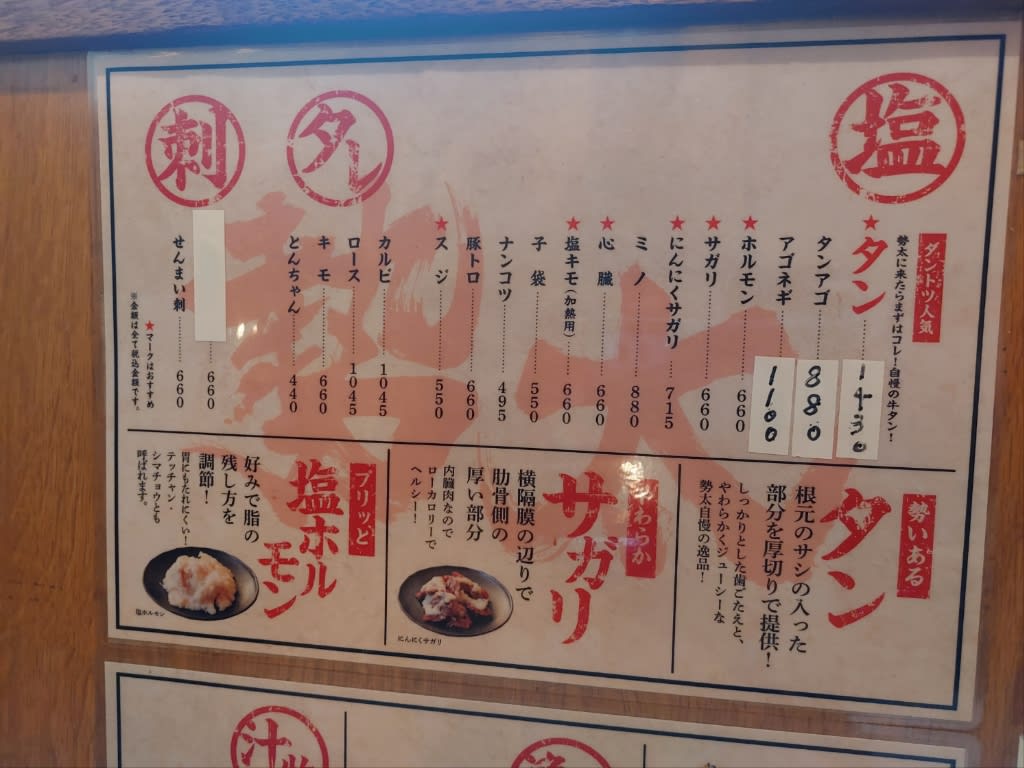 塩
ダントツ人気
勢太に来たらまずはコレ!自慢の牛タン!
★タン 1430
タンアゴ 880
アゴネギ 1100
★ホルモン 660
★サガリ 660
★にんにくサガリ 715
ミノ 880
★心臓 660
★塩キモ(加熱用) 660
子袋 550
ナンコツ 495
豚トロ 660
★スジ 550
タレ
カルビ 1045
ロース 1045
キモ 660
とんちゃん 440
刺
660
せんまい刺 660
★マークはおすすめ
※金額は全て税込金額です。
勢いある
タン
根元のサシの入った
部分を厚切りで提供!
しっかりとした歯ごたえと、
やわらかくジューシーな
勢太自慢の逸品!
やわらか
サガリ
横隔膜の辺りで
肋骨側の
厚い部分
内臓肉なので
ローカロリーで
ヘルシー!
にんにくサガリ
プリッと
塩ホルモン
好みで脂の
残し方を
調節!
胃にもたれにくい!
テッチャン・
シマチョウとも
呼ばれます。
塩ホルモン
勢太
汁